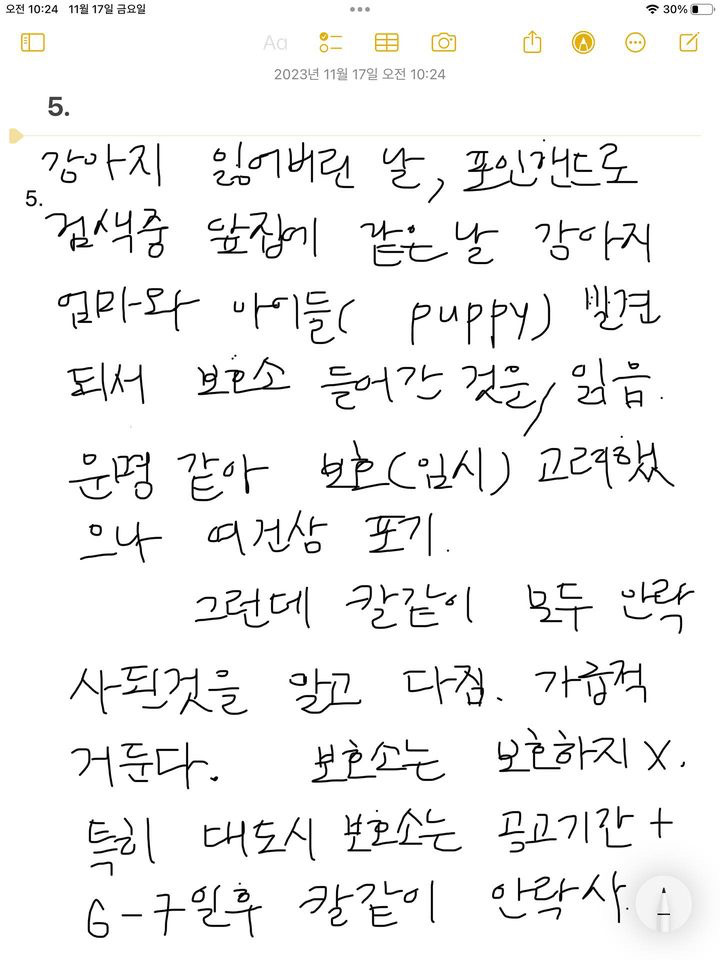 오전 10:24 11월 17일 금요일 30%
Aa
2023년 11월 17일 오전 10:24
5.
강아지 잃어버린 날, 포인핸드로
5. 검색중 앞집에 같은날 강아지
엄마와 아이들( puppy) 발견
되서 보호소 들어간 것을, 읽음.
운명 같아 보호(임시) 고려했
으나 여건상 포기.
그런데 칼같이 모두 안락
사된것을 알고 다짐. 가급적
거둔다. 보호소는 보호하지 X.
특히 대도시 보호소는 공고기간 +
6-7일후 칼같이 안락사.